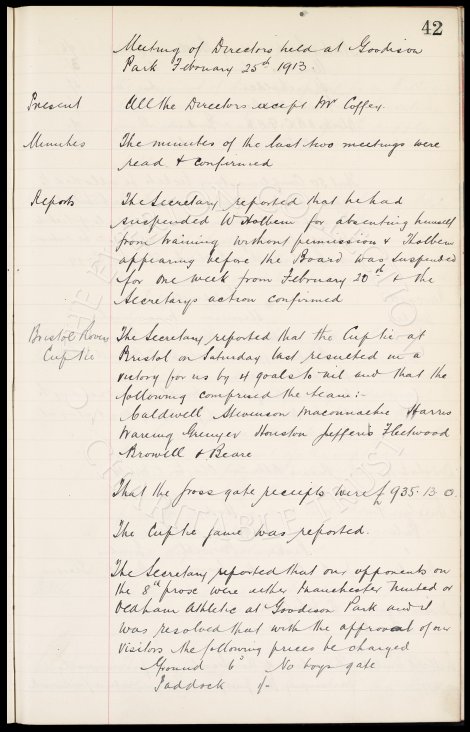 42
Meeting of Directors held at Goodison
Park February 25th 1913.
Present All the Directors except Mr Coffey.
Minutes The minutes of the last two meetings were
read & confirmed
Reports The Secretary reported that he had
suspended W Holbem for absenting himself
from training without permission & Holbem
appearing before the Board was suspended
for one week from February 20th & the
Secretarys action confirmed
Bristol Rovers The Secretary reported that the Cup tie at
Cup tie Bristol on Saturday last resulted in a
victory for us by 4 goals to nil and that the
following comprised the team:-
Caldwell Stevenson Maconnachie Harris
Wareing Grenyer Houston Jefferis Fleetwood
Browell & Beare
That the gross gate receipts were £935.13.0.
The Cup tie game was reported.
The Secretary reported that our opponents on
the 8th prox were either Manchester United or
Oldham Athletic at Goodison Park and it
was resolved that with the approval of our
visitors the following prices be charged
Ground 6d No boys gate
Paddock 1/-